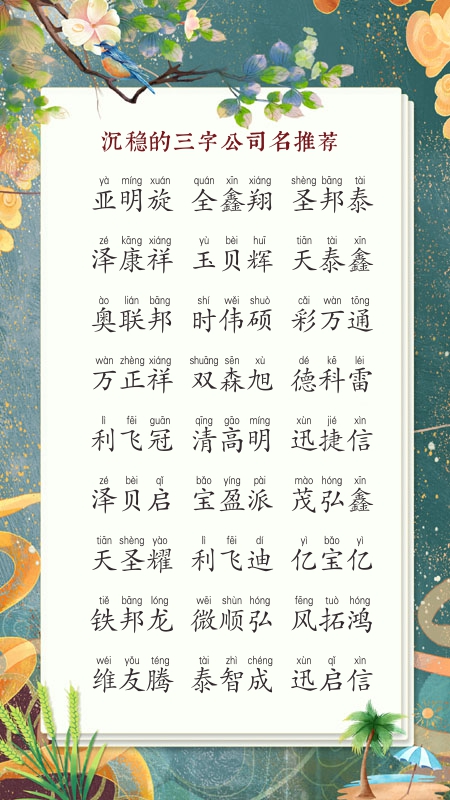 沉稳的三字公司名推荐
yà míng xuán quán xīn xiáng shèng bāng tài
亚明旋 全鑫翔 圣邦泰
zé kāng xiáng yù bèi huī tiān tài xīn
泽康祥 玉贝辉 天泰鑫
ào lián bāng shí wěi shuò cǎi wàn tōng
奥联邦 时伟硕 彩万通
wàn zhèng xiáng shuāng sēn xù dé kē léi
万正祥 双森旭 德科雷
lì fēi guān qīng gāo míng xùn jié xìn
利飞冠 清高明 迅捷信
zé bèi qǐ bǎo yíng pài mào hóng xīn
泽贝启 宝盈派 茂弘鑫
tiān shèng yào lì fēi dí yì bǎo yì
天圣耀 利飞迪 亿宝亿
tiě bāng lóng wēi shùn hóng fēng tuò hóng
铁邦龙 微顺弘 风拓鸿
wéi yǒu téng tài zhì chéng xùn qǐ xìn
维友腾 泰智成 迅启信